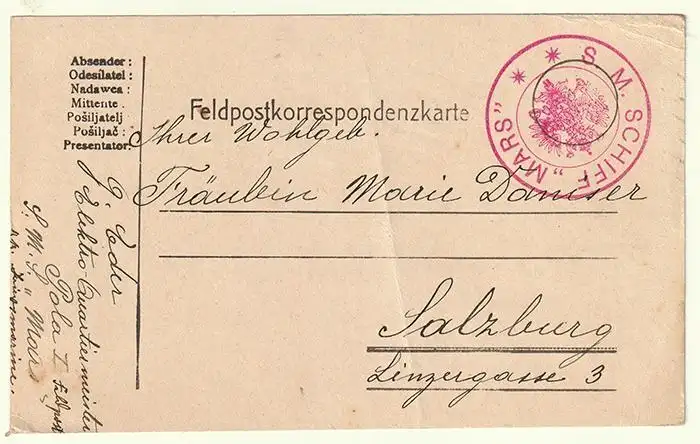 Absender:
Odesílatel:
Nadawca:
Mittente.
Pošiljatelj
Pošiljač:
Presentator:
Feldpostkorrespondenzkarte
* * S. M. SCHIFF „MARS"
Ihrer Wohlgeb.
Fräulein Marie Damser
Salzburg
Linzergasse 3
J. Eder
Elektro Quartiermeister
Pola I Feldpost
S. M. S. „Mars